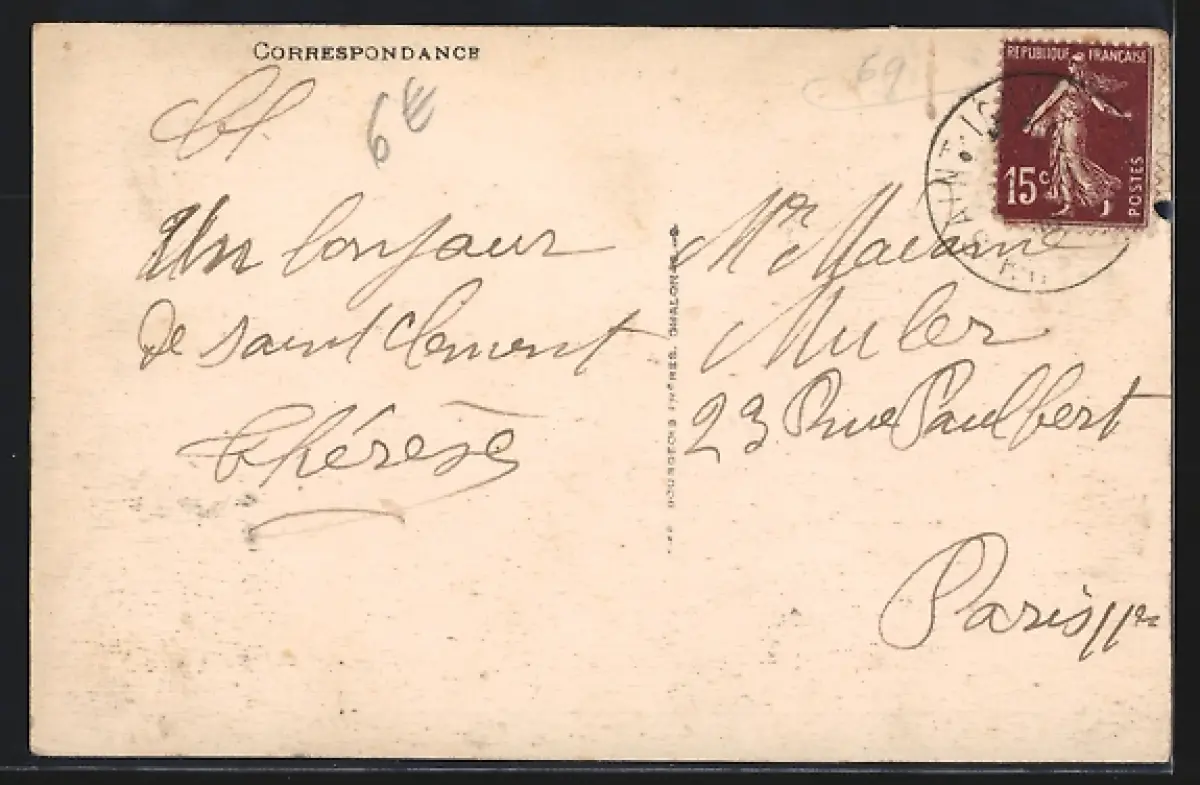 CORRESPONDANCE
6€
69
REPUBLIQUE FRANÇAISE
15c
POSTES
Un bonjour
de saint Clement
Thérèse
Mr Madame
Muler
23 Rue Paulbert
Paris 11e
BOURGEOIS FRÈRES, CHALON-S-S